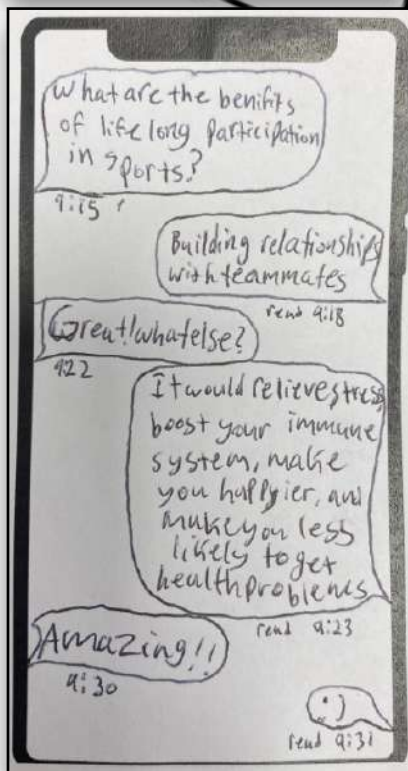 What are the benifits
of life long participation
in sports?
9:15
Building relationships
with teammates
read 9:18
Great! what else?
9:22
It would relieve stress,
boost your immune
system, make
you happier, and
make you less
likely to get
health problems
read 9:23
Amazing!!
9:30
:)
read 9:31